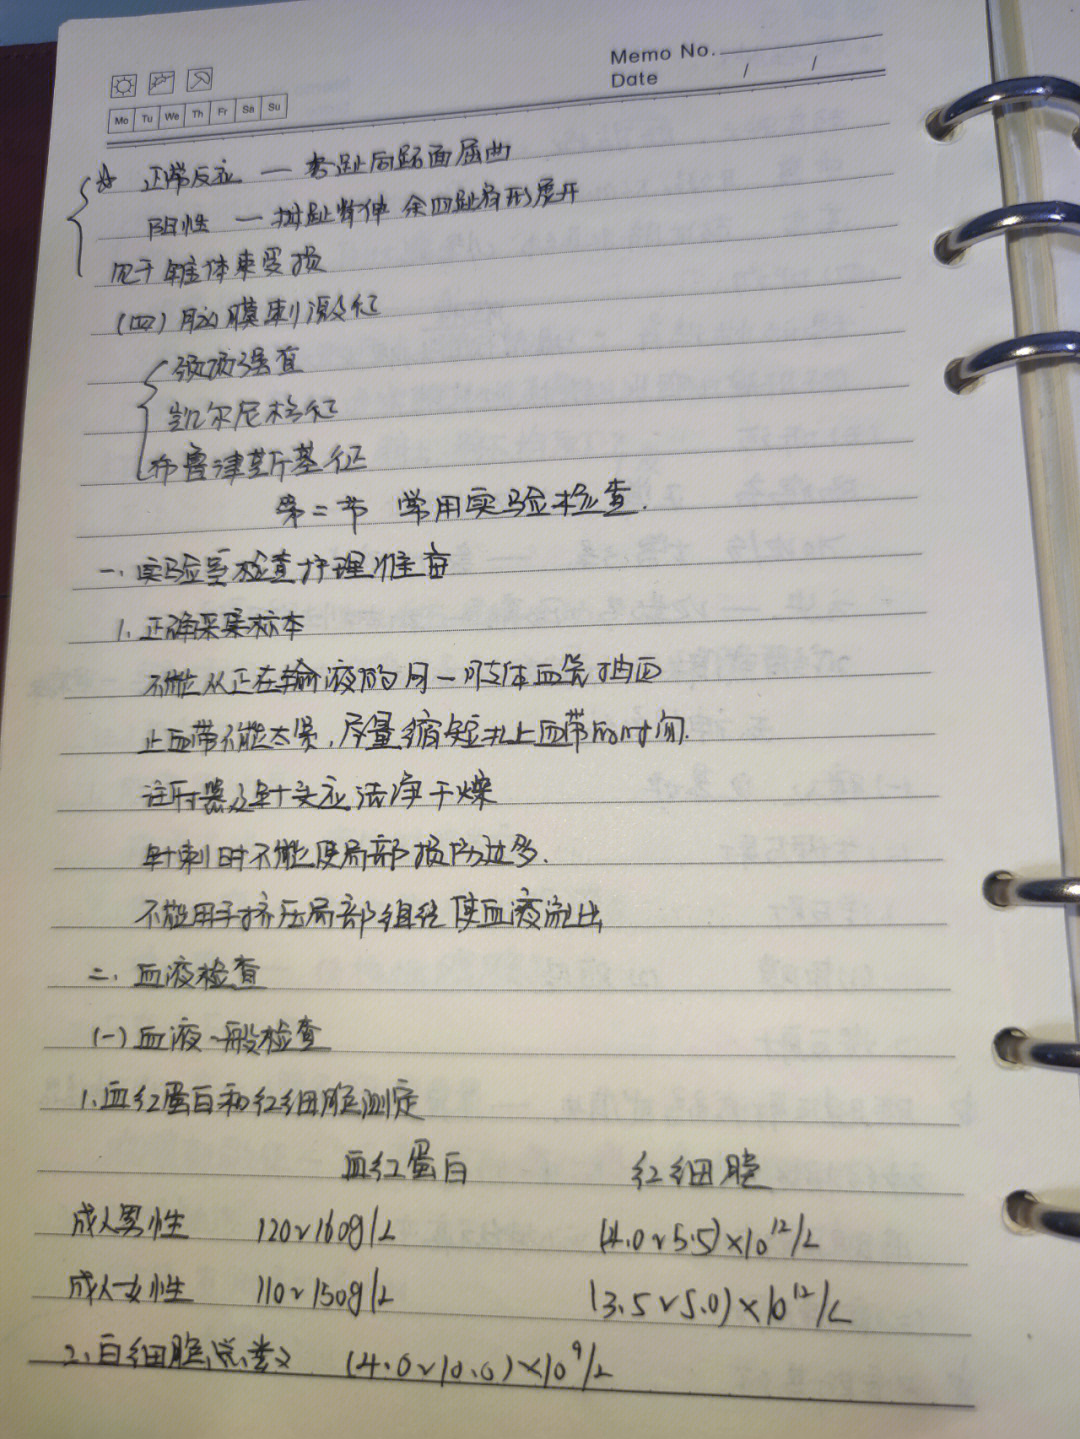 Memo No.
Date / /
Mo Tu We Th Fr Sa Su
☆ 正常反应 — 各趾向跖面屈曲
阳性 — 拇趾背伸 余四趾扇形展开
见于锥体束受损
(四) 脑膜刺激征
颈项强直
凯尔尼格征
布鲁津斯基征
第二节 常用实验检查.
一. 实验室检查护理准备
1. 正确采集标本
不能从正在输液的同一肢体血管抽血
止血带不能太紧, 尽量缩短扎止血带的时间.
注射器及针头应洁净干燥
针刺时不能使局部损伤过多.
不能用手挤压局部组织使血液流出
二. 血液检查
(一) 血液一般检查
1. 血红蛋白和红细胞测定
血红蛋白 红细胞
成人男性 120~160g/L (4.0~5.5)×10¹²/L
成人女性 110~150g/L (3.5~5.0)×10¹²/L
2. 白细胞总数 (4.0~10.0)×10⁹/L